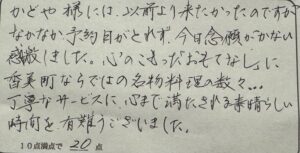 かどや様には、以前より来たかったのですが
なかなか予約日がとれず、今日念願がかない
感激しました。心のこもったおもてなしに
香美町ならではの名物料理の数々…
丁寧なサービスに、心まで満たされる素晴らしい
時間を有難うございました。
10点満点で 20 点